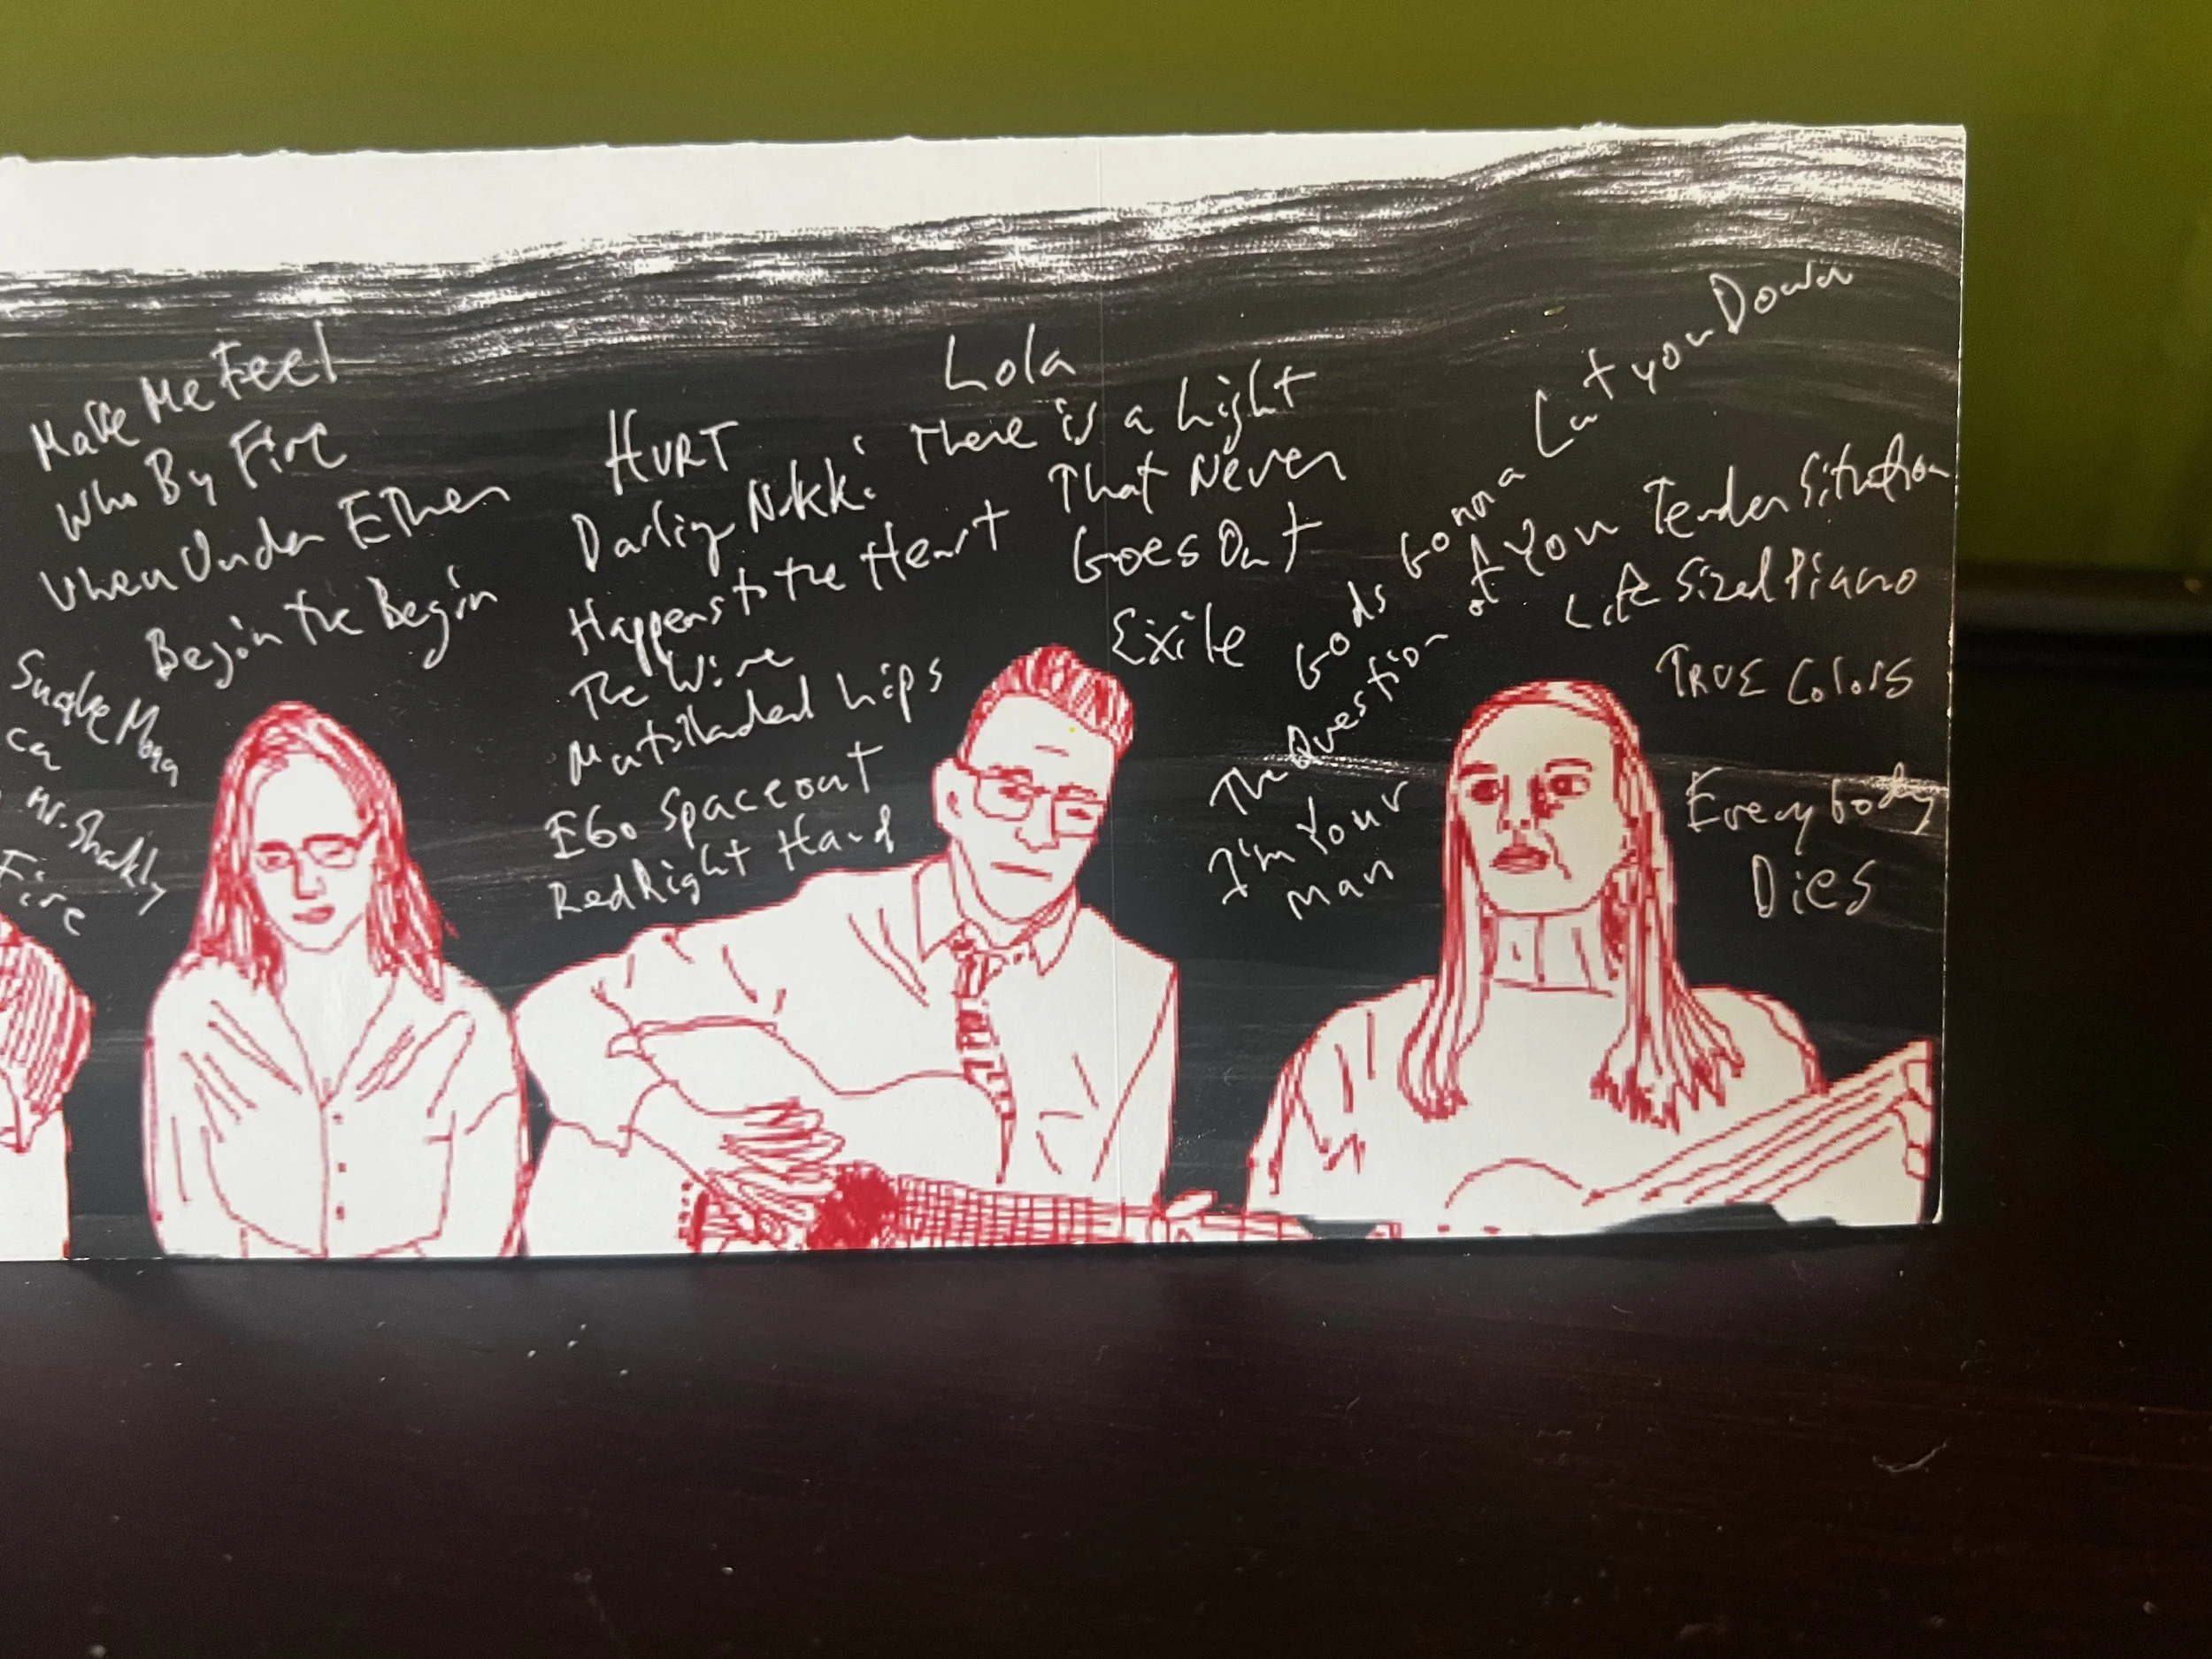 Make Me Feel
Who By Fire
When Under Ether
Begin the Begin
Snake
ca
Mr. Shakly
Fire
HURT
Darling Nikki
Happens to the Heart
The Wire
Lips
EGo Spaceout
Red Right Hand
Lola
There is a Light
That Never
Goes Out
Exile
Gods Gonna Cut you Down
The Question of You
I'm Your
Man
Tender Sitution
Life Sized Piano
TRUE Colors
Everybody
Dies